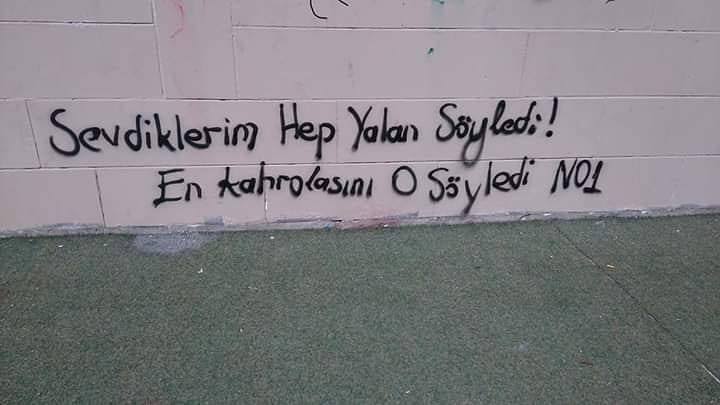 Sevdiklerim Hep Yalan Söyledi!
En kahrolasını O Söyledi NO1